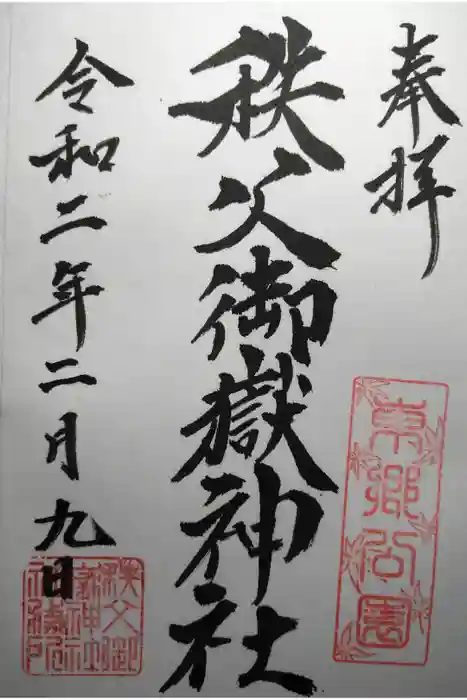 奉拝
東郷公園
秩父御嶽神社
令和二年二月九日
秩父御
嶽神社
社務所